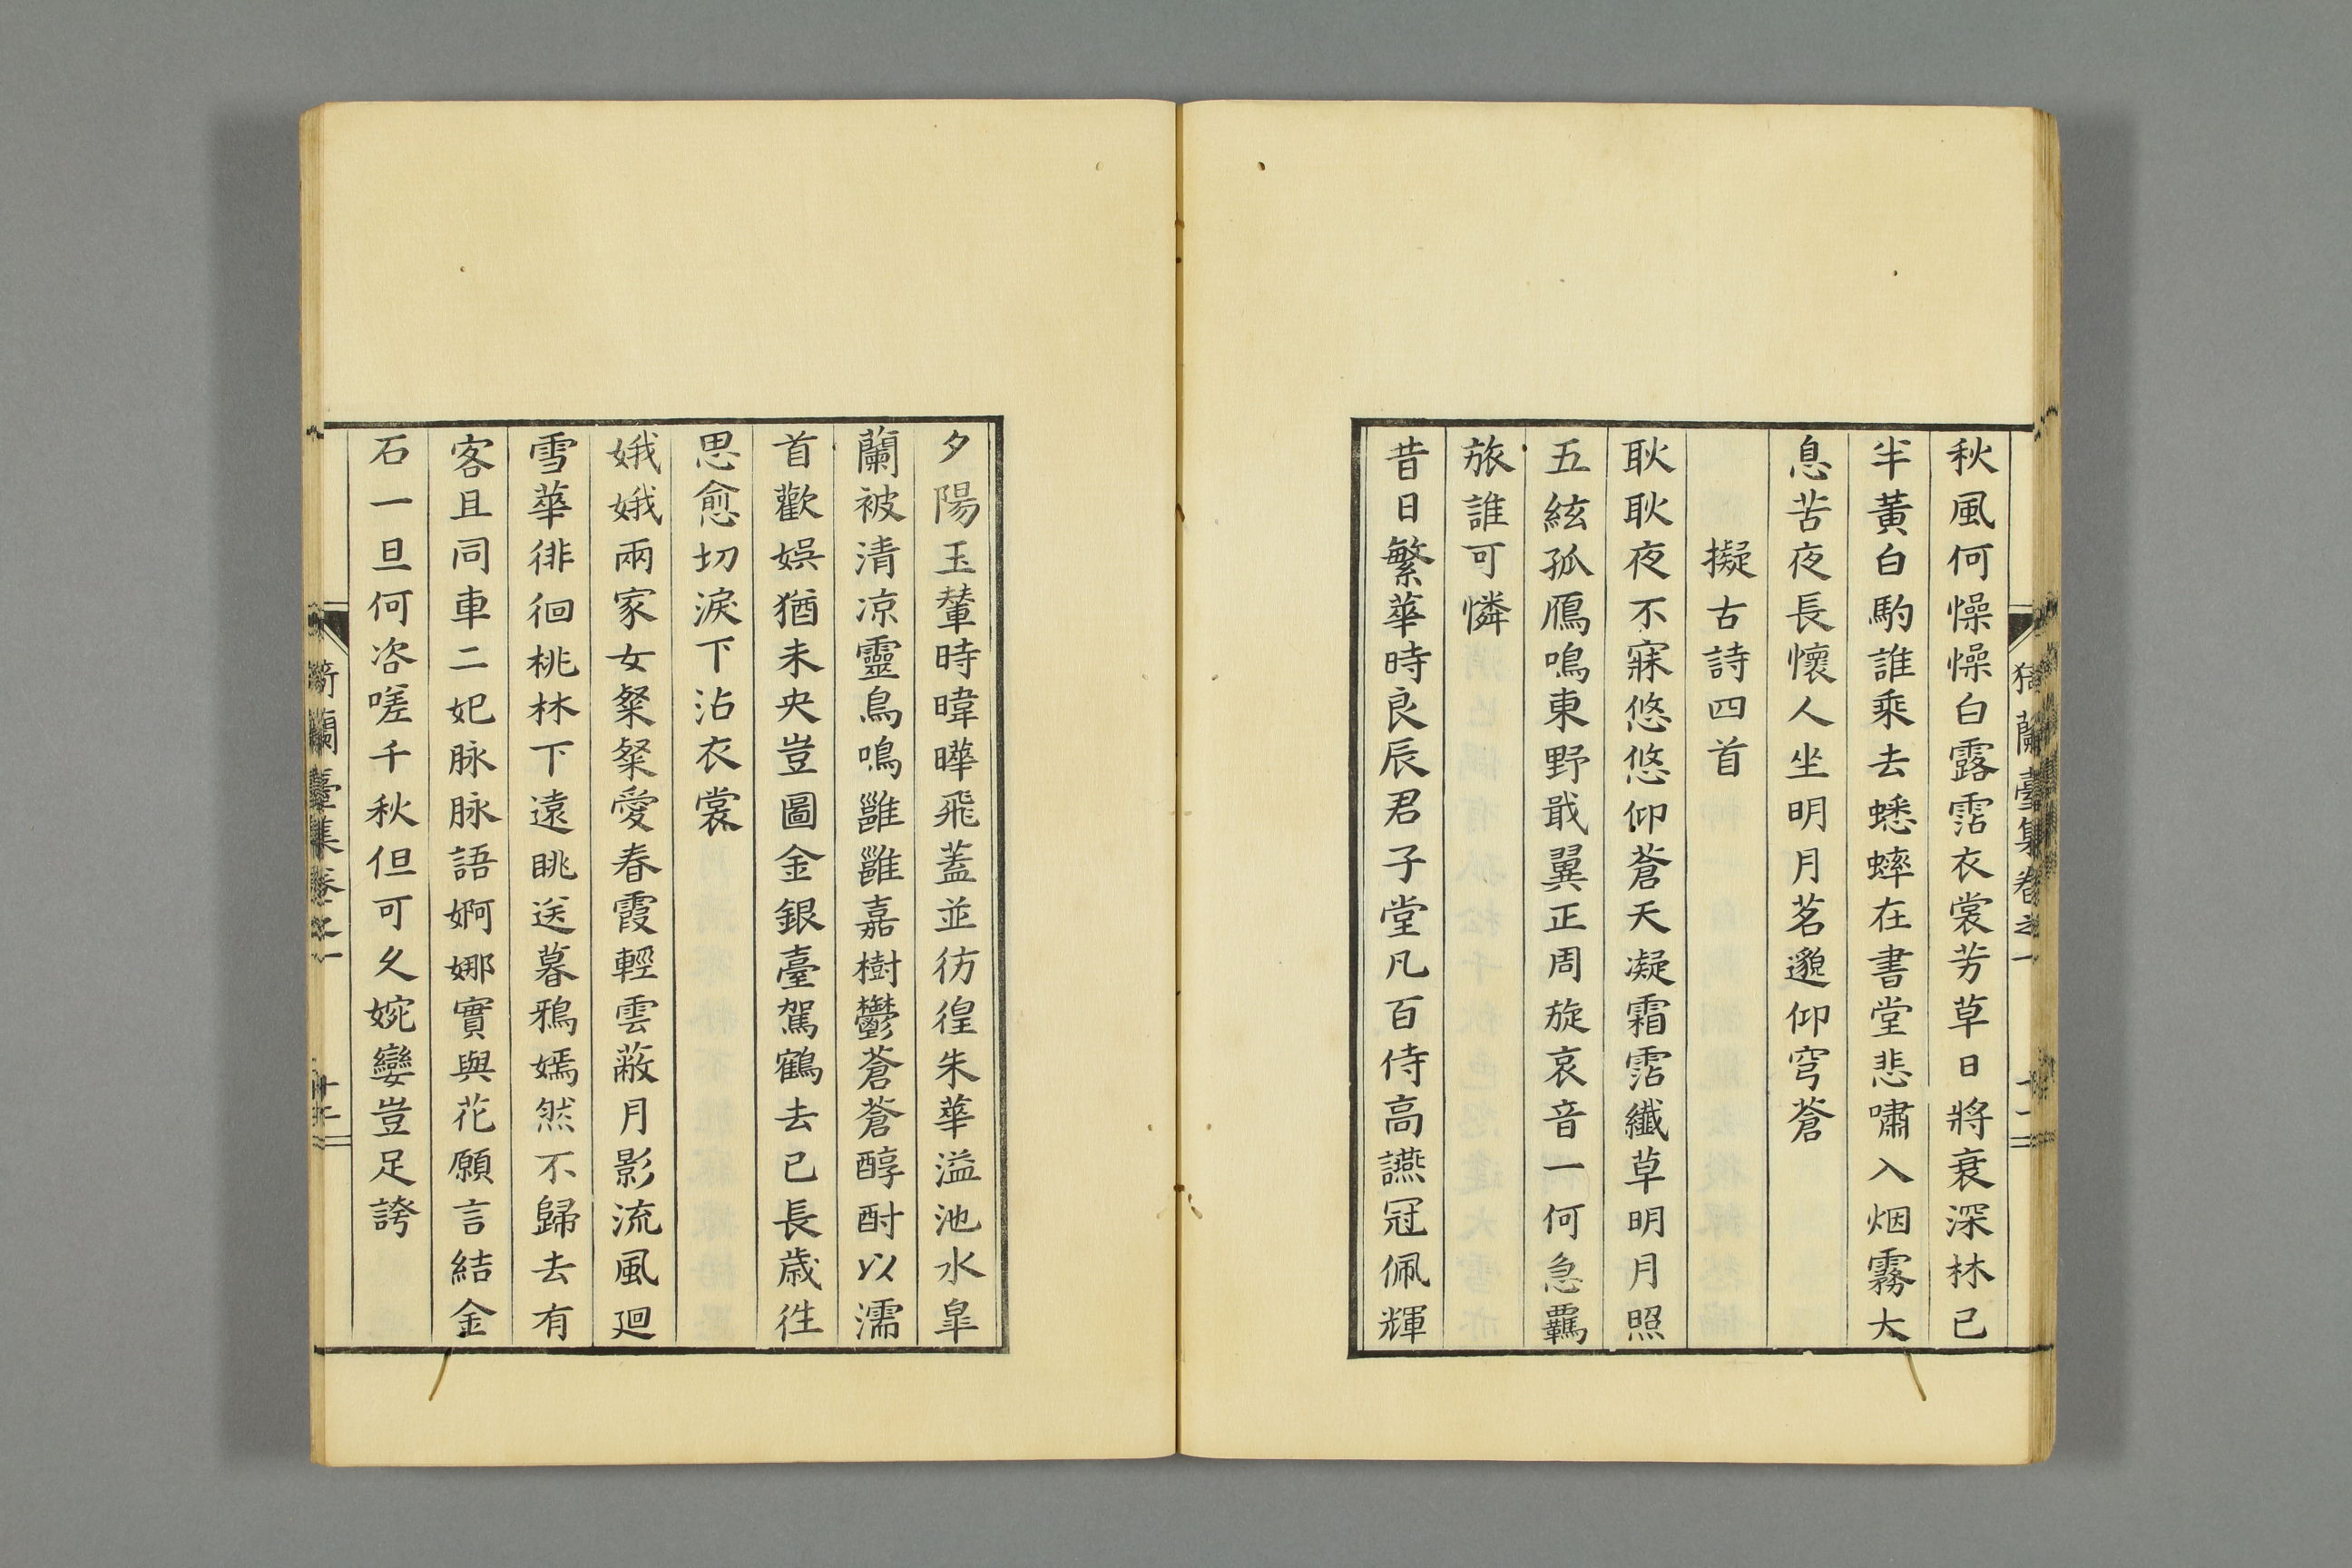 猗蘭臺集卷之一 十一
秋風何懆懆白露霑衣裳芳草日將衰深林已
半黃白駒誰乘去蟋蟀在書堂悲嘯入烟霧大
息苦夜長懷人坐明月茗邈仰穹蒼
擬古詩四首
耿耿夜不寐悠悠仰蒼天凝霜霑纖草明月照
五絃孤鴈鳴東野戢翼正周旋哀音一何急羈
旅誰可憐
昔日繁華時良辰君子堂凡百侍高讌冠佩輝
夕陽玉輦時暐曄飛蓋並彷徨朱華溢池水皐
蘭被清凉靈鳥鳴雝雝嘉樹鬱蒼蒼醇酎以濡
首歡娯猶未央豈圖金銀臺駕鶴去已長歳徃
思愈切淚下沾衣裳
娥娥兩家女粲粲愛春霞輕雲蔽月影流風廻
雪華徘徊桃林下遠眺送暮鴉嫣然不歸去有
客且同車二妃脉脉語婀娜實與花願言結金
石一旦何咨嗟千秋但可久婉孌豈足誇
猗蘭臺集卷之一